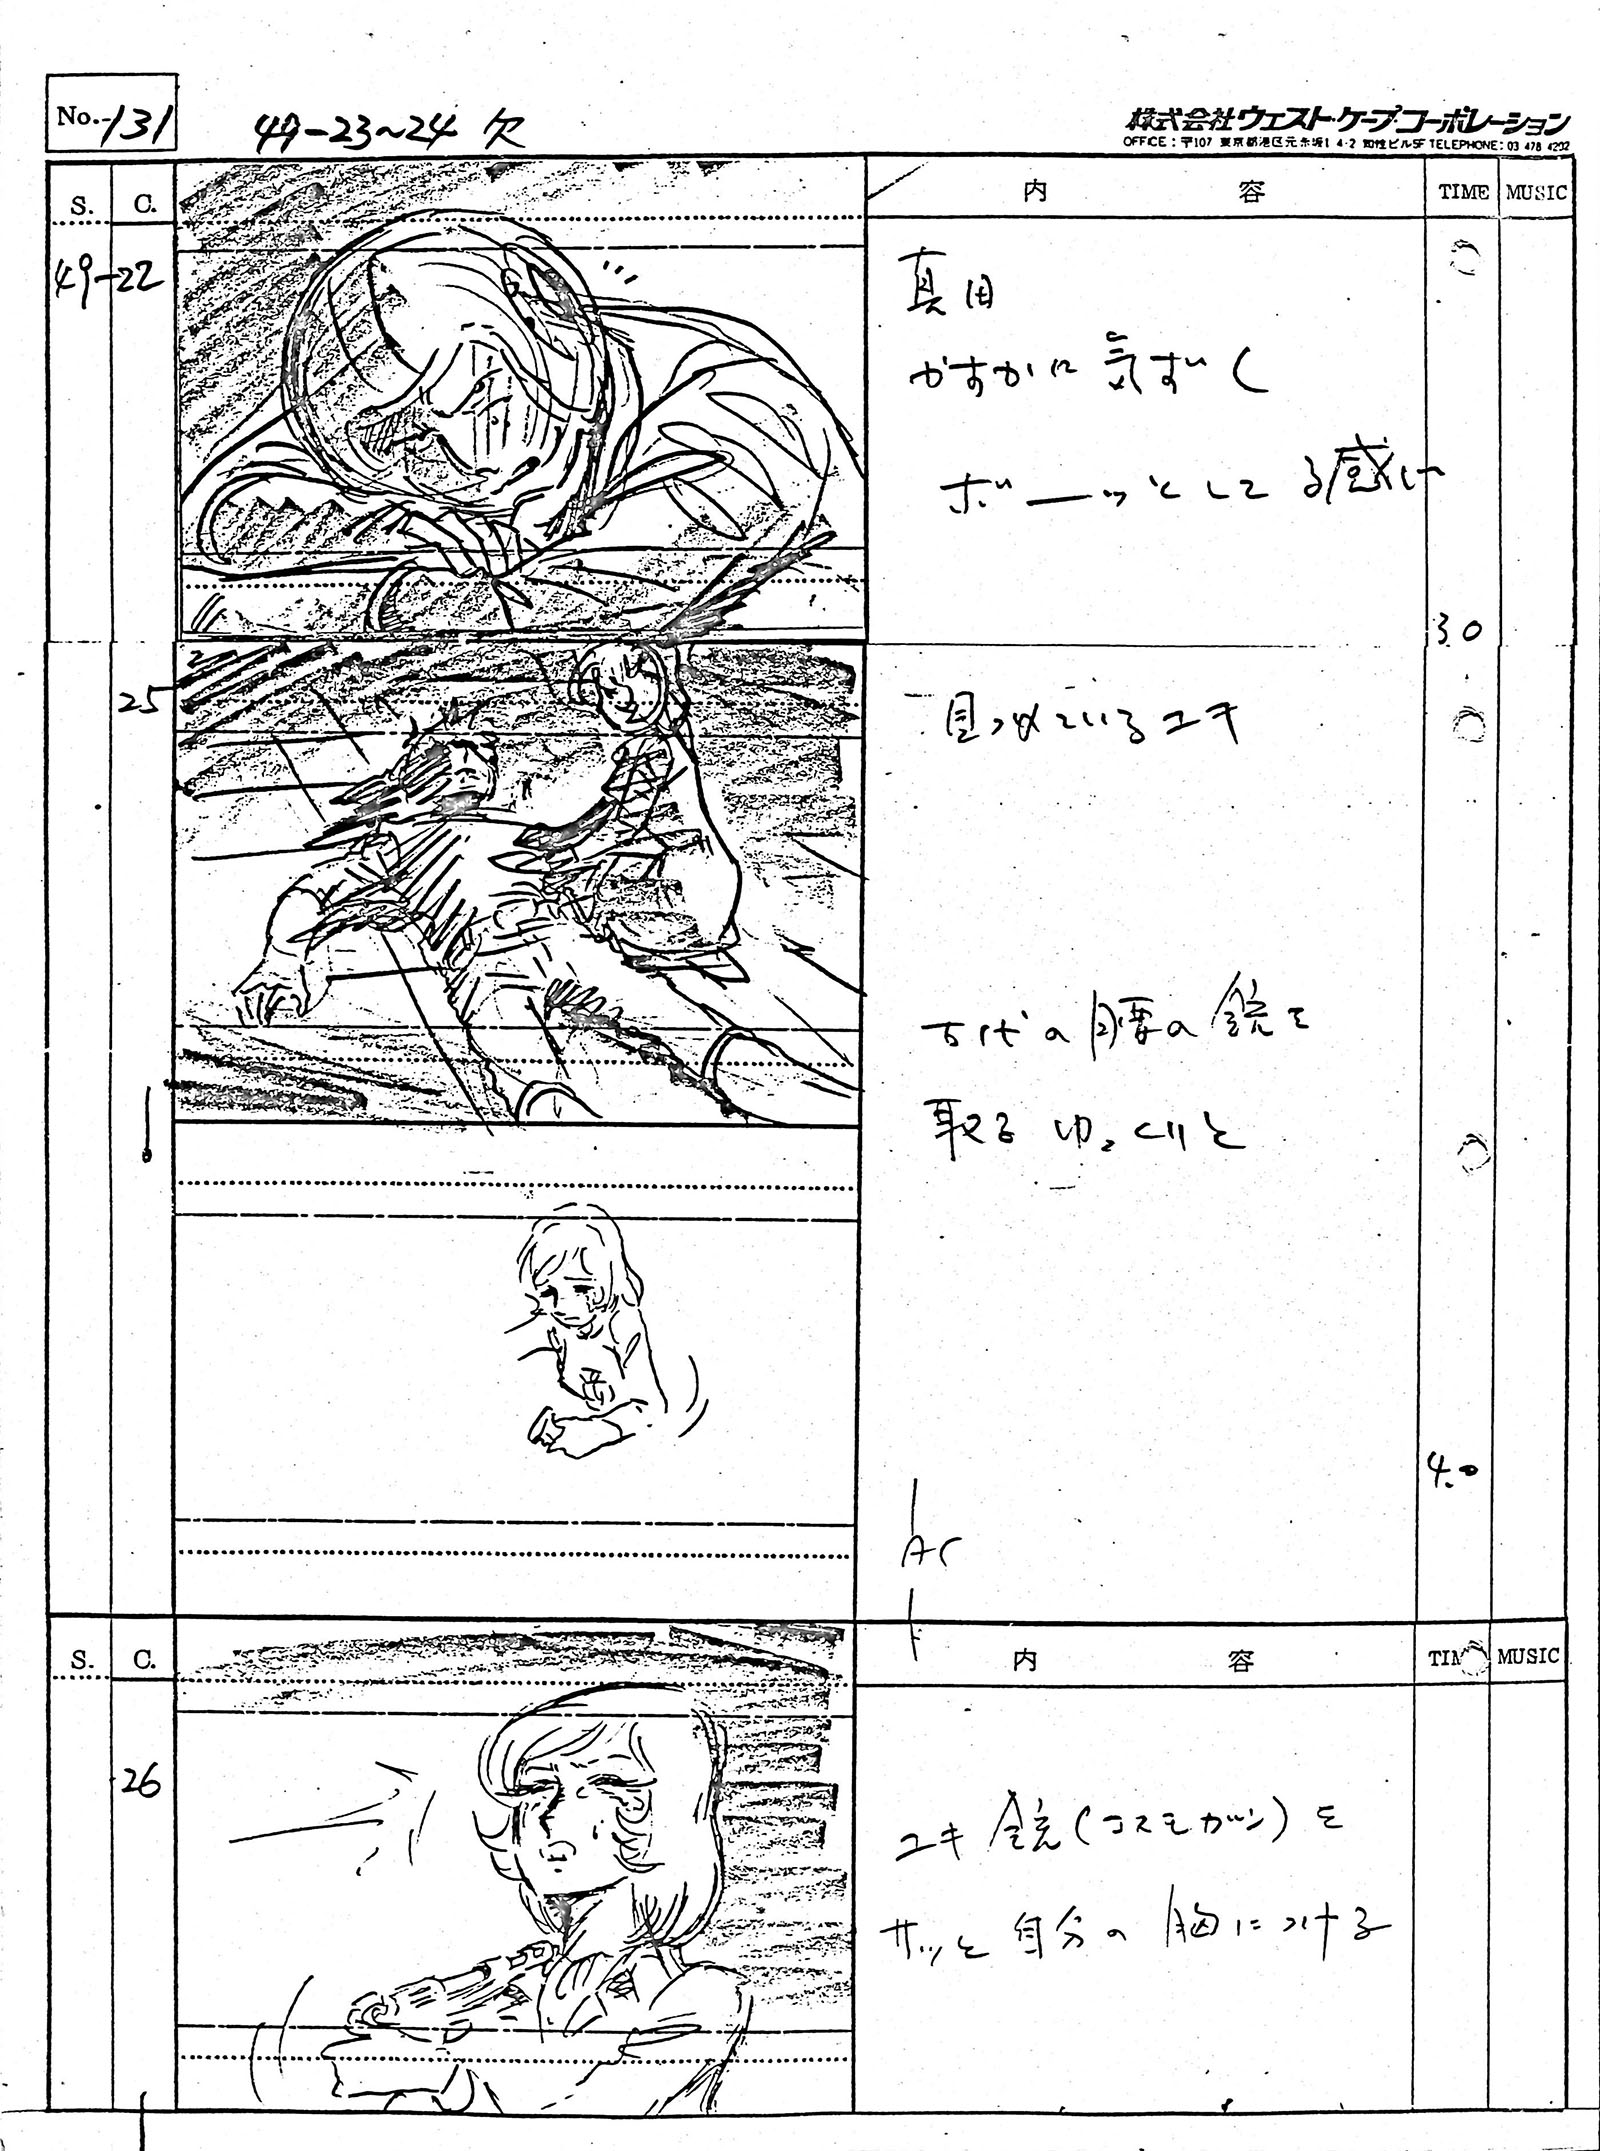 No.-131
49-23~24 欠
株式会社ウェスト・ケープ・コーポレーション
OFFICE:〒107 東京都港区元赤坂1 4-2 知性ビル5F TELEPHONE:03 478 4202
S. C. 内 容 TIME MUSIC
49-22
真田
かすかに気ずく
ボーッとしてる感じ
30
25
見つめているユキ
古代の腰の銃を
取る ゆっくりと
4.0
AC
S. C. 内 容 TIM MUSIC
26
ユキ 銃(コスモガン)を
サッと自分の胸につける